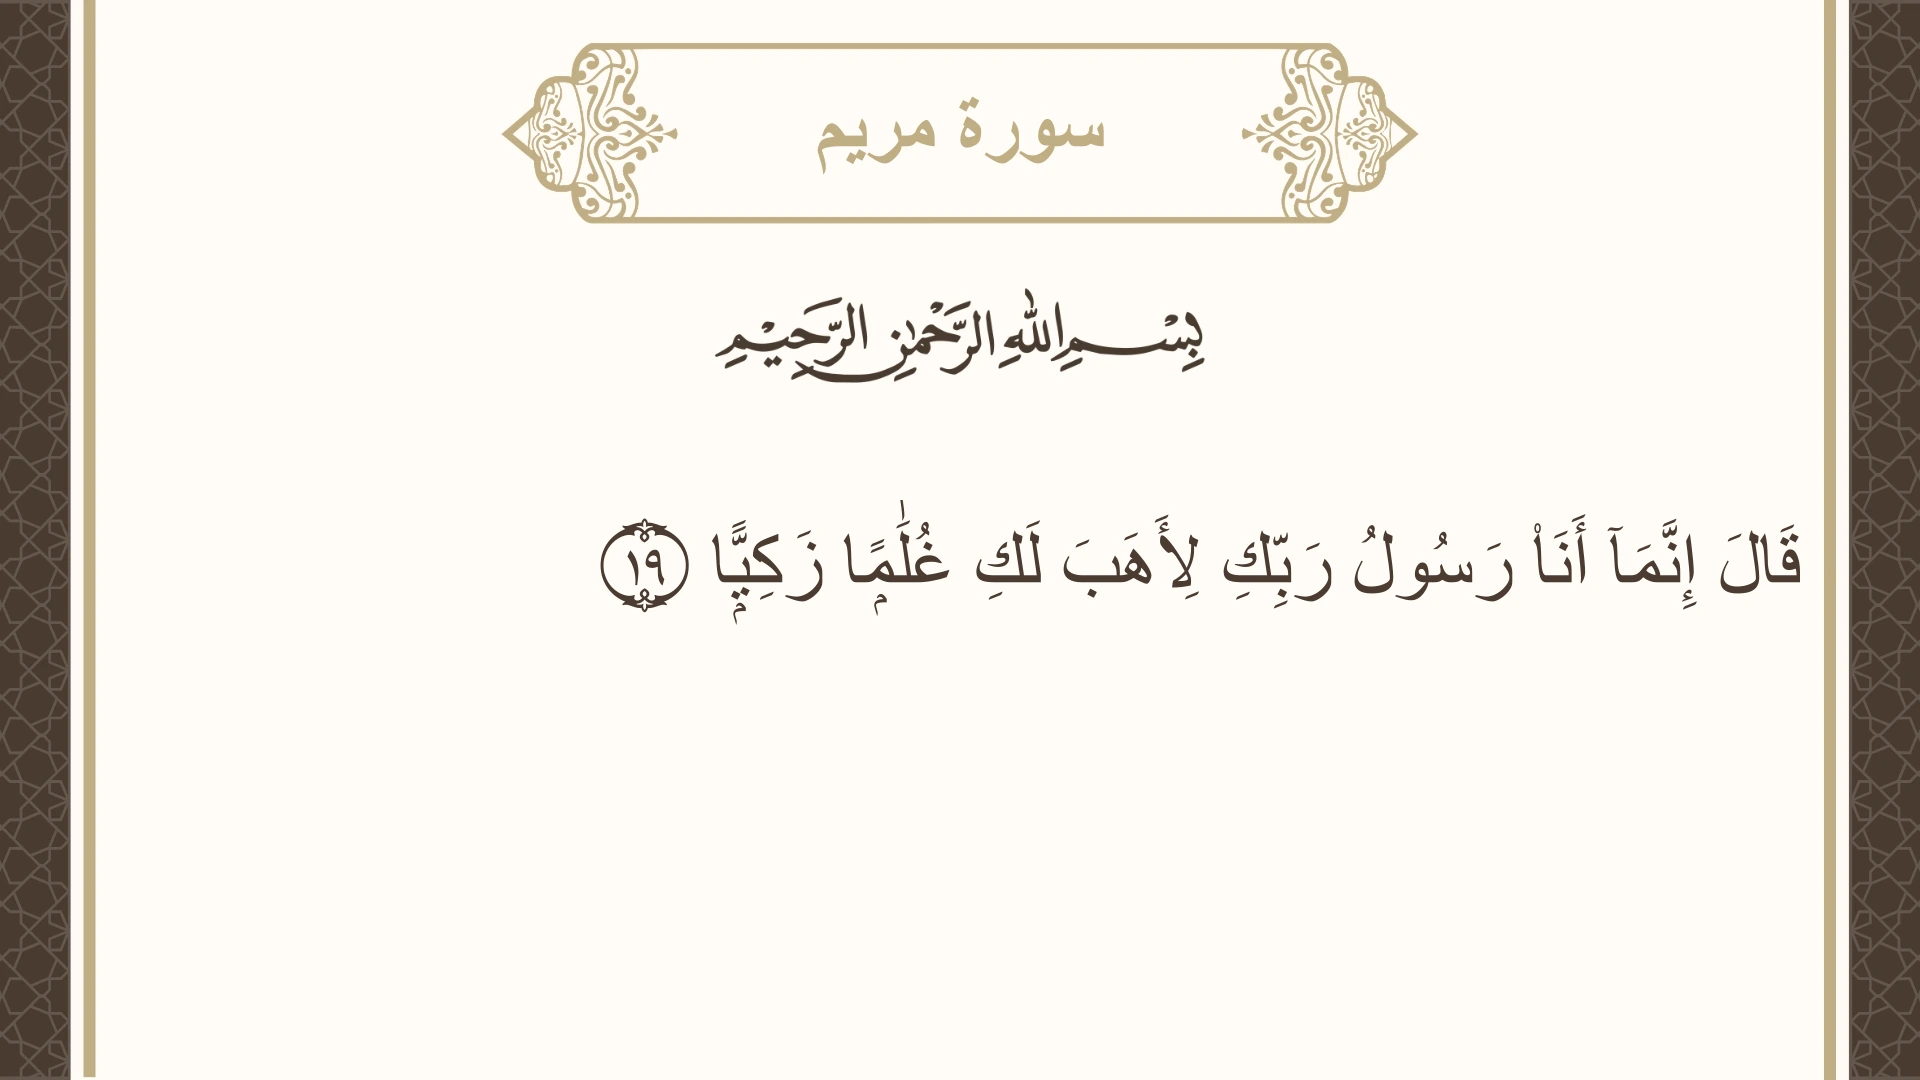 سورة مريم
بِسْمِ اللهِ الرَّحْمٰنِ الرَّحِيْمِ
قَالَ إِنَّمَآ أَنَا۠ رَسُولُ رَبِّكِ لِأَهَبَ لَكِ غُلَٰمًۭا زَكِيًّۭا ١٩